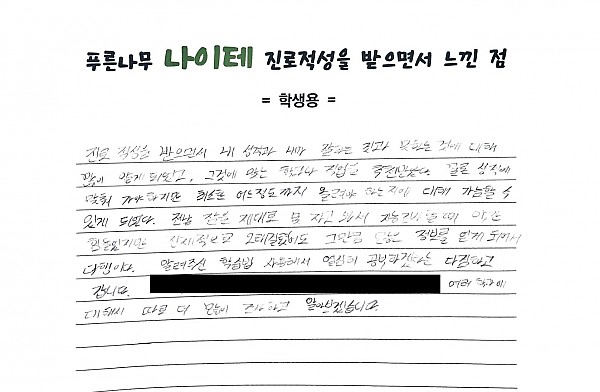 푸른나무 나이테 진로적성을 받으면서 느낀 점
= 학생용 =
진로 적성을 받으면서 내 성격과 내가 잘하는 것과 못하는 것에 대해
많이 알게 되었고, 그것에 맞는 학과나 직업을 추천받았다. 물론 성적에
맞춰 가야하지만 최소한 어느정도까지 올려야 하는지에 대해 가늠할 수
있게 되었다. 전날 잠을 제대로 못 자고 와서
힘들었지만 그만큼 많은 정보를 얻게 되어서
다행이다. 알려주신 학습법 사용해서 열심히 공부하겠다는 다짐하고
갑니다. 여러 학과에
대해서 따로 더 많이 조사하고 알아보겠습니다.